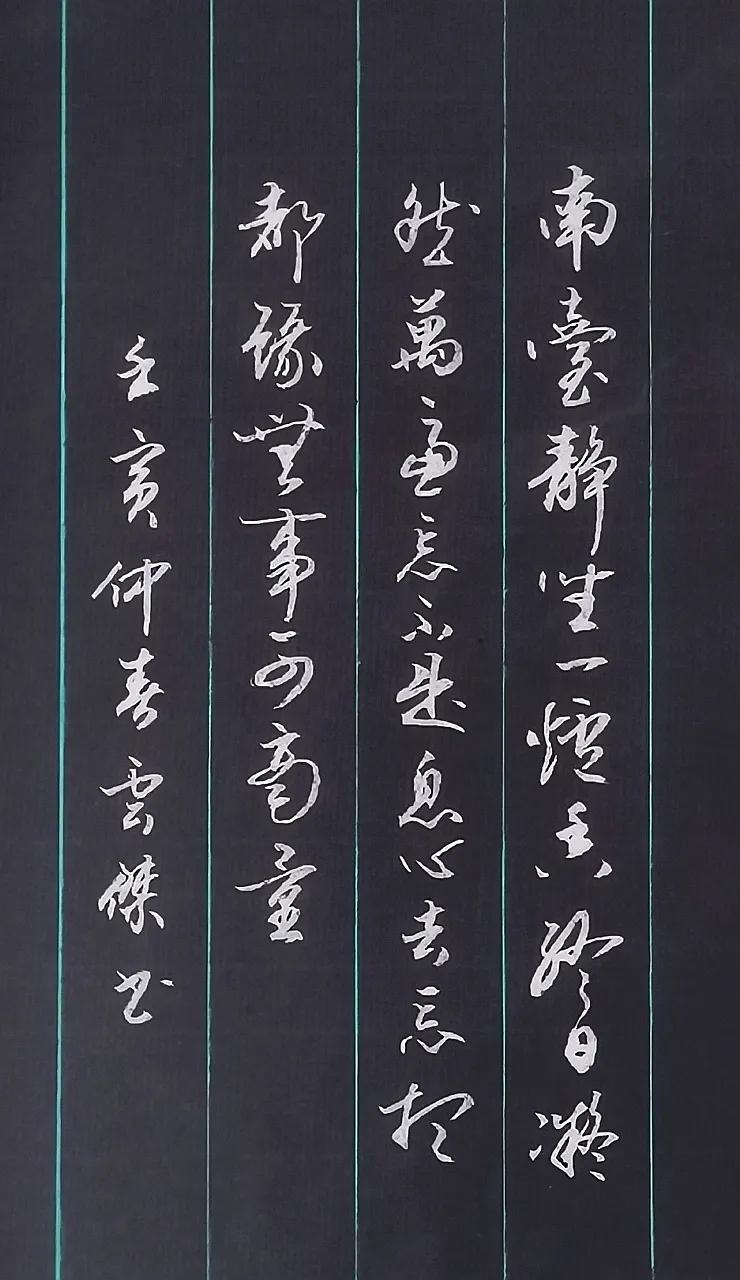 南臺靜坐一爐香終日凝
然萬慮忘不是息心去忘想
都緣無事可商量
壬寅仲春雲傑書